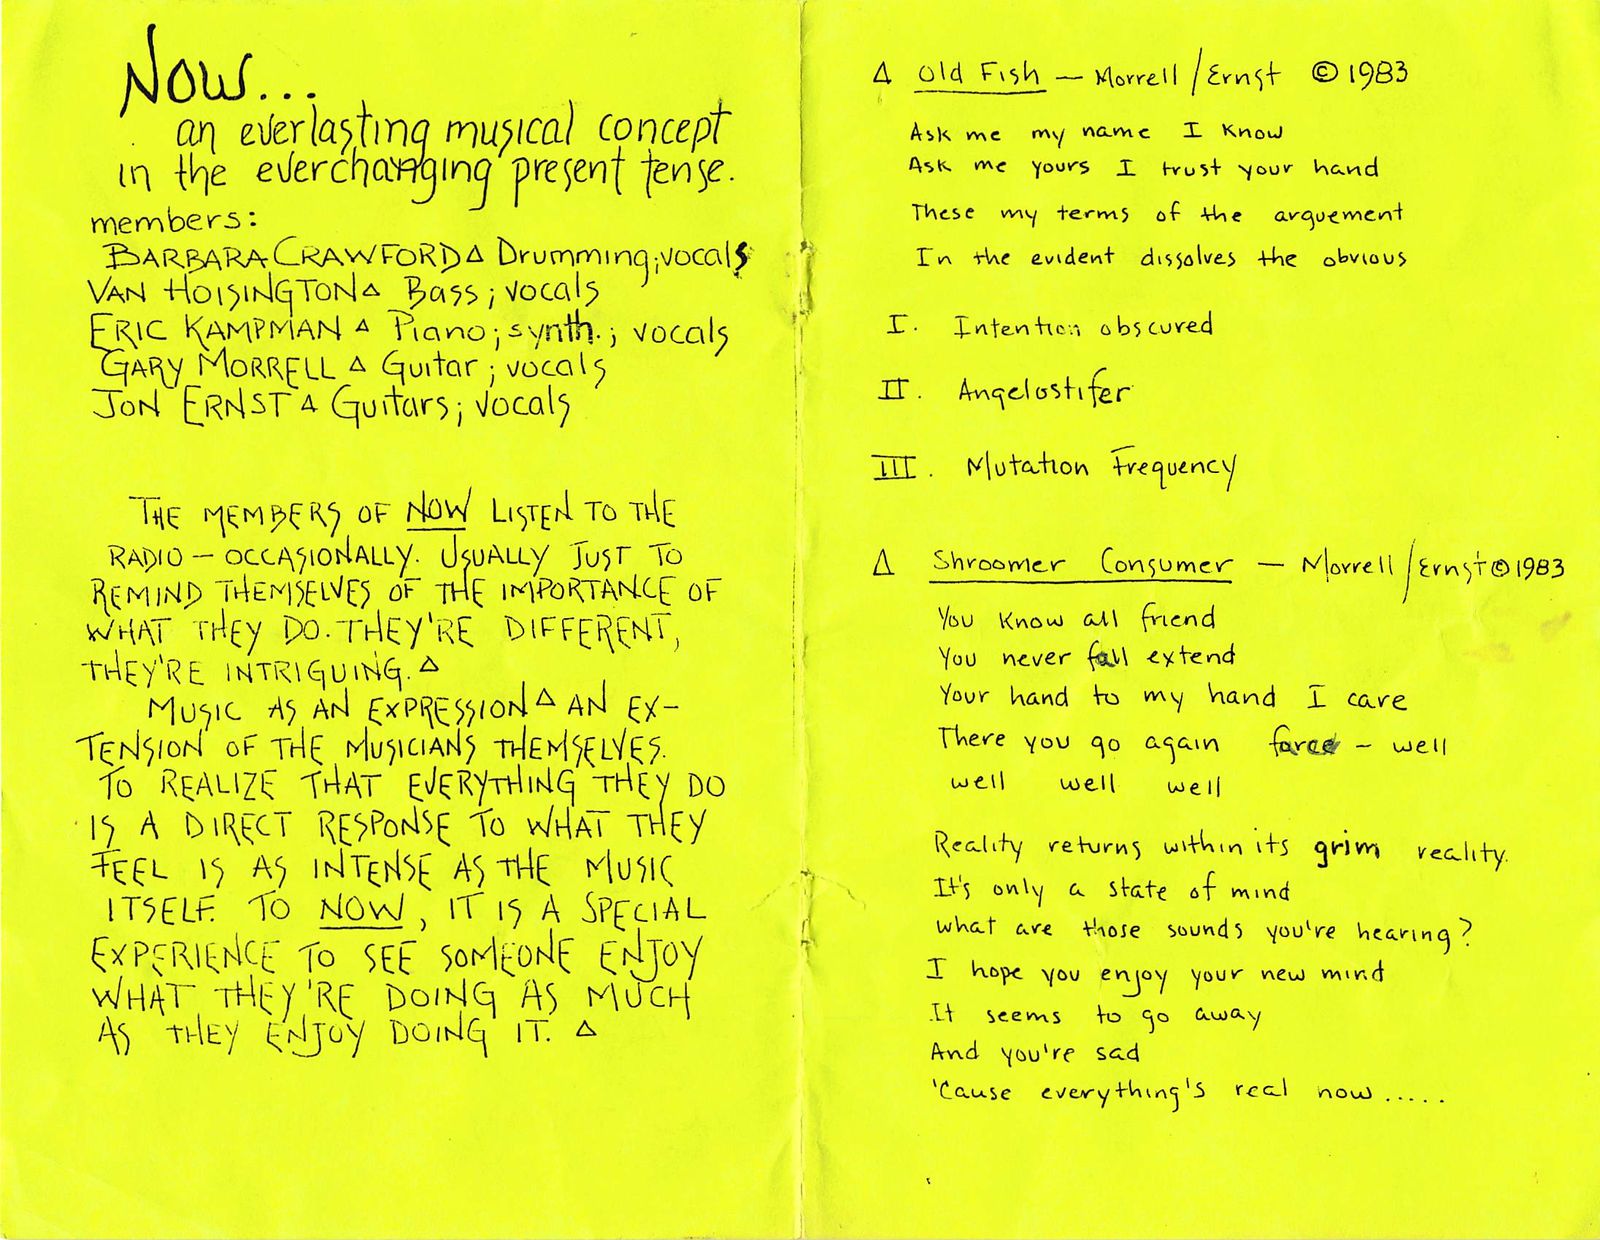 Now...
an everlasting musical concept
in the everchanging present tense.
members:
BARBARA CRAWFORD Δ Drumming; vocals
VAN HOISINGTON Δ Bass; vocals
ERIC KAMPMAN Δ Piano; synth.; vocals
GARY MORRELL Δ Guitar; vocals
JON ERNST Δ Guitars; vocals
THE MEMBERS OF NOW LISTEN TO THE
RADIO – OCCASIONALLY. USUALLY JUST TO
REMIND THEMSELVES OF THE IMPORTANCE OF
WHAT THEY DO. THEY'RE DIFFERENT,
THEY'RE INTRIGUING. Δ
MUSIC AS AN EXPRESSION Δ AN EX-
TENSION OF THE MUSICIANS THEMSELVES.
TO REALIZE THAT EVERYTHING THEY DO
IS A DIRECT RESPONSE TO WHAT THEY
FEEL IS AS INTENSE AS THE MUSIC
ITSELF. TO NOW, IT IS A SPECIAL
EXPERIENCE TO SEE SOMEONE ENJOY
WHAT THEY'RE DOING AS MUCH
AS THEY ENJOY DOING IT. Δ
Δ Old Fish — Morrell/Ernst © 1983
Ask me my name I know
Ask me yours I trust your hand
These my terms of the arguement
In the evident dissolves the obvious
I. Intention obscured
II. Angelostifer
III. Mutation Frequency
Δ Shroomer Consumer — Morrell/Ernst © 1983
You know all friend
You never fall extend
Your hand to my hand I care
There you go again farce – well
well well well
Reality returns within its grim reality.
It's only a state of mind
what are those sounds you're hearing?
I hope you enjoy your new mind
It seems to go away
And you're sad
'Cause everything's real now.....